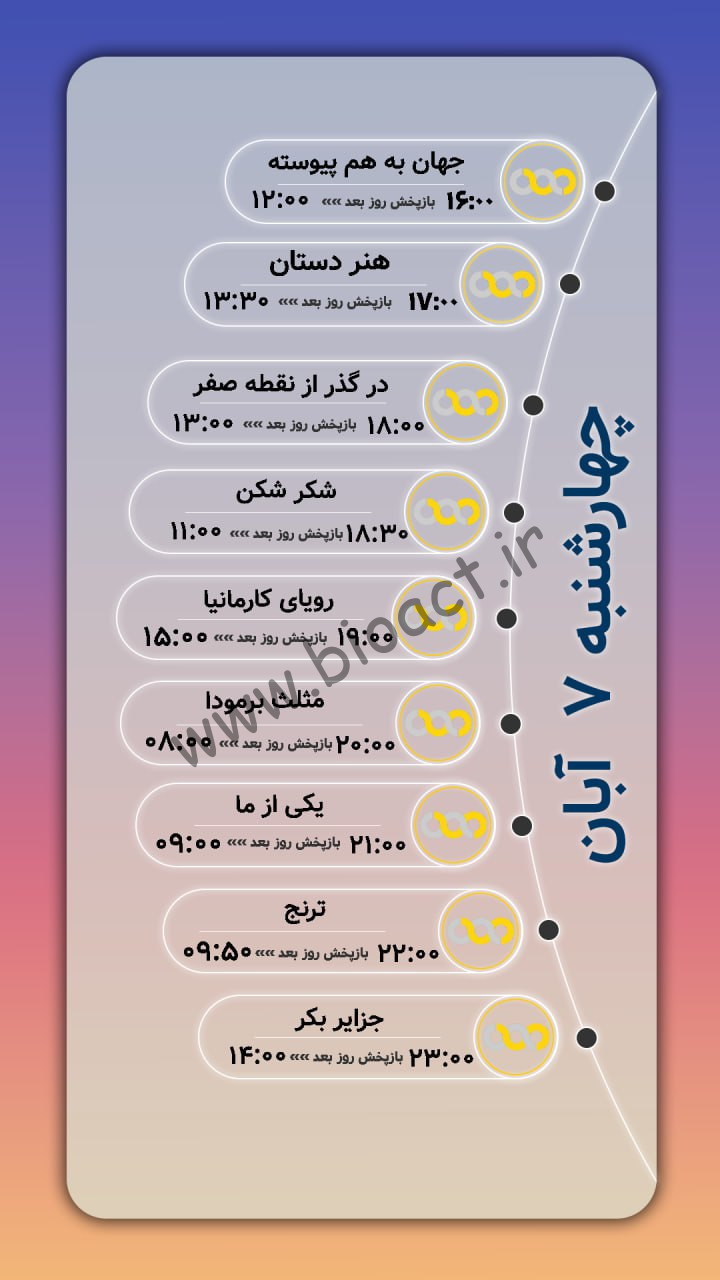 جهان به هم پیوسته
۱۶:۰۰ بازپخش روز بعد »» ۱۲:۰۰
هنر دستان
۱۷:۰۰ بازپخش روز بعد »» ۱۳:۳۰
در گذر از نقطه صفر
۱۸:۰۰ بازپخش روز بعد »» ۱۳:۰۰
شکر شکن
۱۸:۳۰ بازپخش روز بعد »» ۱۱:۰۰
رویای کارمانیا
۱۹:۰۰ بازپخش روز بعد »» ۱۵:۰۰
مثلث برمودا
۲۰:۰۰ بازپخش روز بعد »» ۰۸:۰۰
یکی از ما
۲۱:۰۰ بازپخش روز بعد »» ۰۹:۰۰
ترنج
۲۲:۰۰ بازپخش روز بعد »» ۰۹:۵۰
جزایر بکر
۲۳:۰۰ بازپخش روز بعد »» ۱۴:۰۰
چهارشنبه ۷ آبان
www.bioact.ir